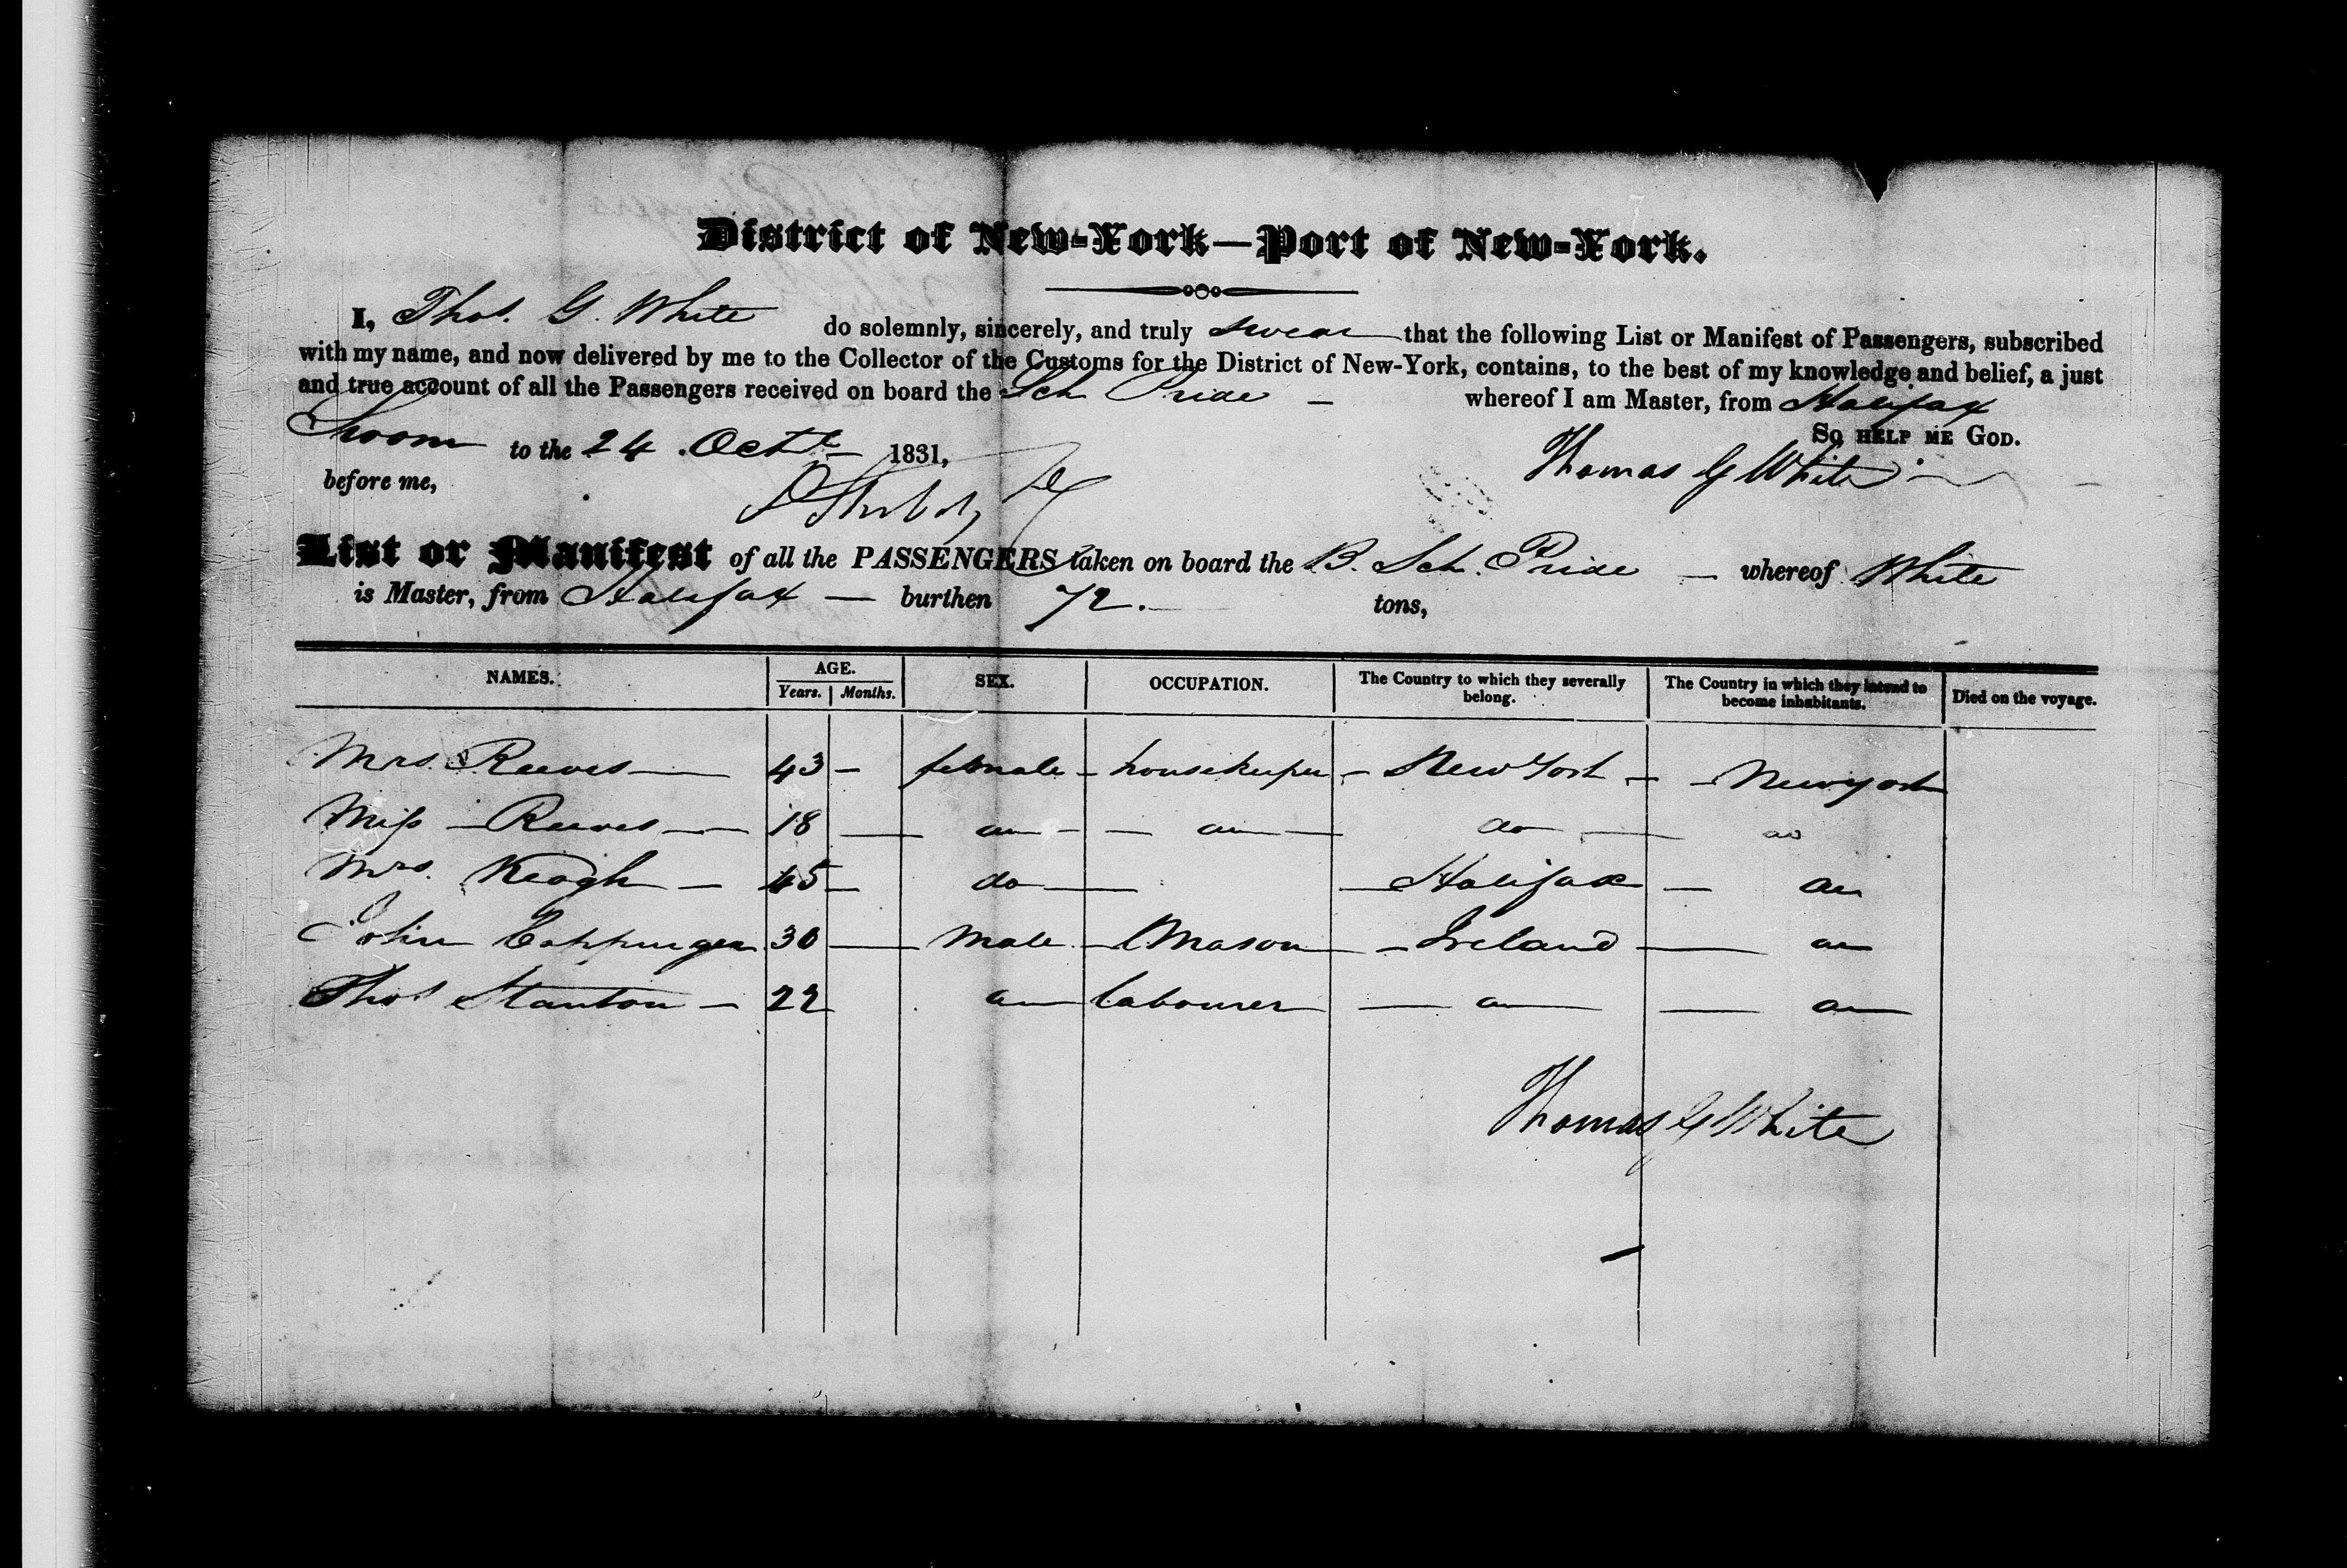 District of New-York—Port of New-York.
I, Thos. G. White do solemnly, sincerely, and truly swear that the following List or Manifest of Passengers, subscribed
with my name, and now delivered by me to the Collector of the Customs for the District of New-York, contains, to the best of my knowledge and belief, a just
and true account of all the Passengers received on board the Sch Pride — whereof I am Master, from Halifax
Sworn to the 24 Octr 1831, So help me God.
before me, Thomas G White
List or Manifest of all the PASSENGERS taken on board the B. Sch. Pride — whereof White
is Master, from Halifax — burthen 72. tons,
NAMES. AGE. Years. Months. SEX. OCCUPATION. The Country to which they severally belong. The Country in which they intend to become inhabitants. Died on the voyage.
Mrs. Reeves — 43 — female — housekeeper — New York — New york
Miss — Reeves — 18 — do — do — do — do
Mrs. Keogh — 45 — do — Halifax — do
John Coppinger 30 — Male — Mason — Ireland — do
Thos Stanton — 22 do labourer — do — do
Thomas G White